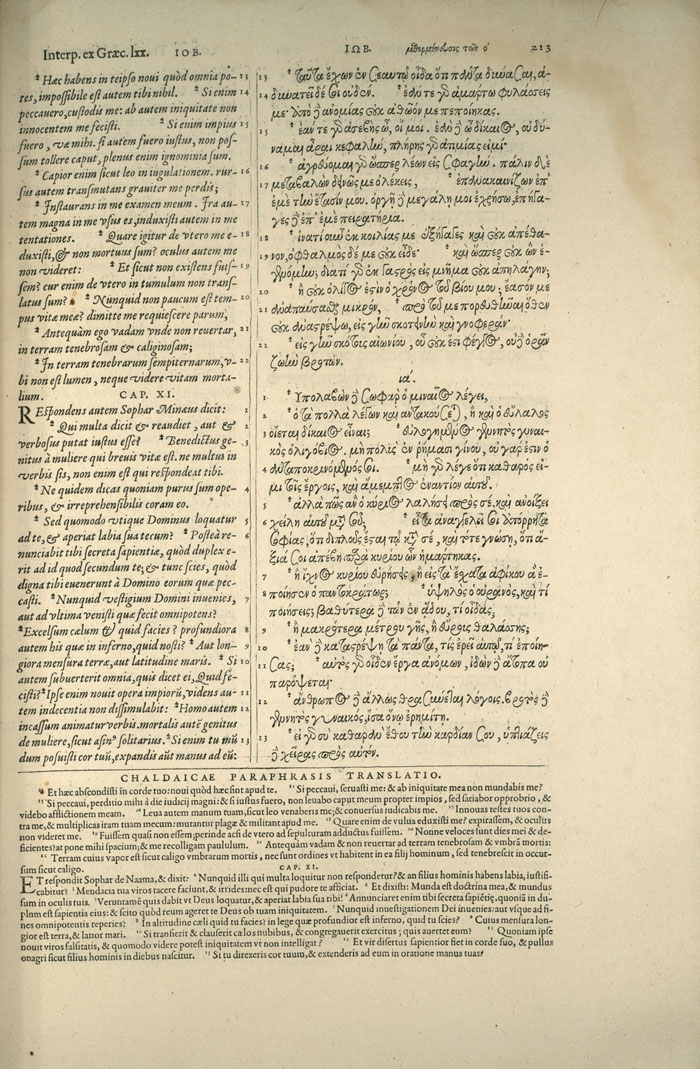 Interp. ex Græc. lxx. IOB.
Hæc habens in teipso noui quòd omnia po- 13
tes, impossibile est autem tibi nihil. Si enim 14
peccauero, custodis me: ab autem iniquitate non
innocentem me fecisti. Si enim impius 15
fuero, væ mihi. si autem fuero iustus, non pos-
sum tollere caput, plenus enim ignominia sum.
Capior enim sicut leo in iugulationem. rur- 16
sus autem transmutans grauiter me perdis;
Instaurans in me examen meum. Ira au- 17
tem magna in me vsus es, induxisti autem in me
tentationes. Quare igitur de vtero me e- 18
duxisti, & non mortuus sum? oculus autem me
non videret: Et sicut non existens fuis- 19
sem? cur enim de vtero in tumulum non trans-
latus sum? Nunquid non paucum est tem- 20
pus vitæ meæ? dimitte me requiescere parum,
Antequàm ego vadam vnde non reuertar, 21
in terram tenebrosam & caliginosam;
In terram tenebrarum sempiternarum, v- 22
bi non est lumen, neque videre vitam morta-
lium. CAP. XI.
REspondens autem Sophar Minæus dicit: 1
Qui multa dicit & reaudiet, aut & 2
verbosus putat iustus esse? Benedictus ge- 3
nitus à muliere qui breuis vitæ est. ne multus in
verbis sis, non enim est qui respondeat tibi.
Ne quidem dicas quoniam purus sum ope- 4
ribus, & irreprehensibilis coram eo.
Sed quomodo vtique Dominus loquatur 5
ad te, & aperiat labia sua tecum? Posteà re- 6
nunciabit tibi secreta sapientiæ, quòd duplex e-
rit ad id quod secundum te; & tunc scies, quòd
digna tibi euenerunt à Domino eorum quæ pec-
casti. Nunquid vestigium Domini inuenies, 7
aut ad vltima venisti quæ fecit omnipotens?
Excelsum cælum & quid facies? profundiora 8
autem his quæ in inferno, quid nosti? Aut lon- 9
giora mensura terræ, aut latitudine maris. Si 10
autem subuerterit omnia, quis dicet ei, Quid fe-
cisti? Ipse enim nouit opera impiorū, videns au- 11
tem indecentia non dissimulabit: Homo autem 12
incassum animatur verbis. mortalis autē genitus
de muliere, sicut asin⁹ solitarius. Si enim tu mū 13
dum posuisti cor tuū, expandis aūt manus ad eū:
ΙΩΒ. μεθερμήνευσις τῶν ο΄ 213
13 Ταῦτα ἔχων ἐν σεαυτῷ οἶδα ὅτι πάντα δύνασαι, ἀ-
14 δυνατεῖ δέ σοι οὐδέν. ἐὰν τε γὰρ ἁμάρτω φυλάσσεις
με· ἀπὸ δὲ ἀνομίας οὐκ ἀθῷόν με πεποίηκας.
15 ἐάν τε γὰρ ἀσεβὴς ὦ, οἴ μοι. ἐὰν δὲ ὦ δίκαιος, οὐ δύ-
ναμαι ἆραι κεφαλὴν, πλήρης γὰρ ἀτιμίας εἰμί·
16 ἀγρεύομαι γὰρ ὥσπερ λέων εἰς σφαγήν. πάλιν δὲ
17 μεταβαλὼν δεινῶς με ὀλέκεις, ἐπανακαινίζων ἐπ᾽
ἐμὲ τὴν ἔτασίν μου. ὀργῇ δὲ μεγάλῃ μοι ἐχρήσω, ἐπήγα-
γες δὲ ἐπ᾽ ἐμὲ πειρατήρια.
18 ἱνατί οὖν ἐκ κοιλίας με ἐξήγαγες καὶ οὐκ ἀπέθα-
19 νον, ὀφθαλμὸς δέ με οὐκ εἶδε· καὶ ὥσπερ οὐκ ὢν ἐ-
γενόμην; διατί γὰρ ἐκ γαστρὸς εἰς μνῆμα οὐκ ἀπηλάγην;
20 ἢ οὐκ ὀλίγος ἐστὶν ὁ χρόνος τοῦ βίου μου; ἔασόν με
21 ἀναπαύσασθαι μικρόν, πρὸ τοῦ με πορευθῆναι ὅθεν
οὐκ ἀναστρέψω, εἰς γῆν σκοτεινὴν καὶ γνοφεράν·
22 εἰς γῆν σκότους αἰωνίου, οὗ οὐκ ἔστι φέγγος, οὐδὲ ὁρᾶν
ζωὴν βροτῶν.
ια΄.
1 Ὑπολαβὼν δὲ Σωφὰρ ὁ μιναῖος λέγει,
2 ὁ τὰ πολλὰ λέγων καὶ ἀντακούσεται, ἢ καὶ ὁ εὔλαλος
3 οἴεται δίκαιος εἶναι; εὐλογημένος γεννητὸς γυναι-
κὸς ὀλιγόβιος. μὴ πολὺς ἐν ῥήμασι γίνου, οὐ γάρ ἐστιν ὁ
4 ἀνταποκρινόμενός σοι. μὴ γὰρ λέγε ὅτι καθαρός εἰ-
μι τοῖς ἔργοις, καὶ ἄμεμπτος ἐναντίον αὐτοῦ.
5 ἀλλὰ πῶς ἂν ὁ κύριος λαλήσῃ πρὸς σέ, καὶ ἀνοίξει
6 χείλη αὐτοῦ μετὰ σοῦ, εἶτα ἀναγελεῖ σοι ἀπόρρητα
σοφίας, ὅτι διπλοῦς ἔσται τῶν κατὰ σέ, καὶ τότε γνώσῃ, ὅτι ἄ-
ξιά σοι ἀπέβη παρὰ κυρίου ὧν ἡμάρτηκας.
7 ἢ ἴχνος κυρίου εὑρήσεις, ἢ εἰς τὰ ἔσχατα ἀφίκου ἃ ἐ-
8 ποίησεν ὁ παντοκράτωρ; ὑψηλὸς ὁ οὐρανὸς, καὶ τί
ποιήσεις; βαθύτερα δὲ τῶν ἐν ᾅδου, τί οἶδας;
9 ἢ μακρότερα μέτρου γῆς, ἢ εὔρους θαλάσσης;
10 ἐὰν δὲ καταστρέψῃ τὰ πάντα, τίς ἐρεῖ αὐτῷ, τί ἐποίη-
11 σας; αὐτὸς γὰρ οἶδεν ἔργα ἀνόμων, ἰδὼν δὲ ἄτοπα οὐ
παρόψεται·
12 ἄνθρωπος δὲ ἄλλως θρασύνεται λόγοις. βροτὸς δὲ
γεννητὸς γυναικὸς, ἴσα ὄνῳ ἐρημίτῃ.
13 εἰ γὰρ σὺ καθαρὰν ἔθου τὴν καρδίαν σου, ὑπτιάζεις
δὲ χεῖρας πρὸς αὐτόν.
CHALDAICAE PARAPHRASIS TRANSLATIO.
Et hæc abscondisti in corde tuo: noui quòd hæc sint apud te. Si peccaui, seruasti me: & ab iniquitate mea non mundabis me?
Si peccaui, perditio mihi à die iudicij magni: & si iustus fuero, non leuabo caput meum propter impios, sed satiabor opprobrio, &
videbo afflictionem meam. Leua autem manum tuam, sicut leo venaberis me; & conuersus iudicabis me. Innouas testes tuos con-
tra me, & multiplicas iram tuam mecum: mutantur plagæ & militant apud me. Quare enim de vulua eduxisti me? expirassem, & oculus
non videret me. Fuissem quasi non essem; perinde acsi de vtero ad sepulturam adductus fuissem. Nonne veloces sunt dies mei & de-
ficientes? at pone mihi spacium; & me recolligam paululum. Antequàm vadam & non reuertar ad terram tenebrosam & vmbrā mortis:
Terram cuius vapor est sicut caligo vmbrarum mortis, nec sunt ordines vt habitent in ea filij hominum, sed tenebrescit in occur-
sum sicut caligo. CAP. XI.
ET respondit Sophar de Naama, & dixit: Nunquid illi qui multa loquitur non respondetur? & an filius hominis habens labia, iustifi-
cabitur? Mendacia tua viros tacere faciunt, & irrides: nec est qui pudore te afficiat. Et dixisti: Munda est doctrina mea, & mundus
sum in oculis tuis. Veruntamē quis dabit vt Deus loquatur, & aperiat labia sua tibi? Annunciaret enim tibi secreta sapiētiæ, quoniā in du-
plum est sapientia eius: & scito quòd reum ageret te Deus ob tuam iniquitatem. Nunquid inuestigationem Dei inuenies: aut vsque ad fi-
nes omnipotentis reperies? In altitudine cæli quid tu facies? in lege quæ profundior est inferno, quid tu scies? Cuius mensura lon-
gior est terra, & latior mari. Si transierit & clauserit cælos nubibus, & congregauerit exercitus; quis auertet eum? Quoniam ipse
nouit viros falsitatis, & quomodo videre potest iniquitatem vt non intelligat? Et vir disertus sapientior fiet in corde suo, & pullus
onagri sicut filius hominis in diebus nascitur. Si tu direxeris cor tuum, & extenderis ad eum in oratione manus tuas: